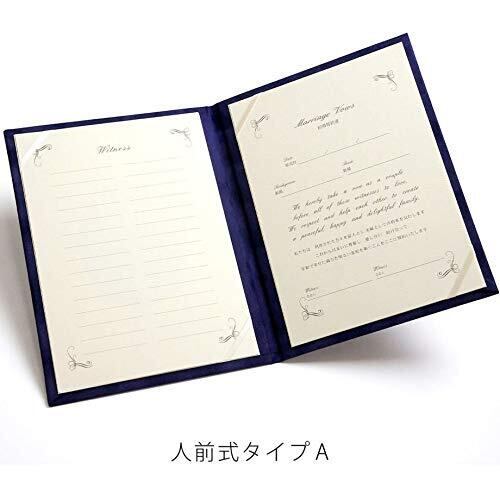 Witness
Marriage Vows
結婚誓約書
Date
挙式日 / /
Bridegroom Bride
新郎 新婦
We hereby take a vow as a couple
before all of these witnesses to love.
We respect and help each other to create
a peaceful, happy and delightful family.
Witness Witness
立会人 立会人
人前式タイプA